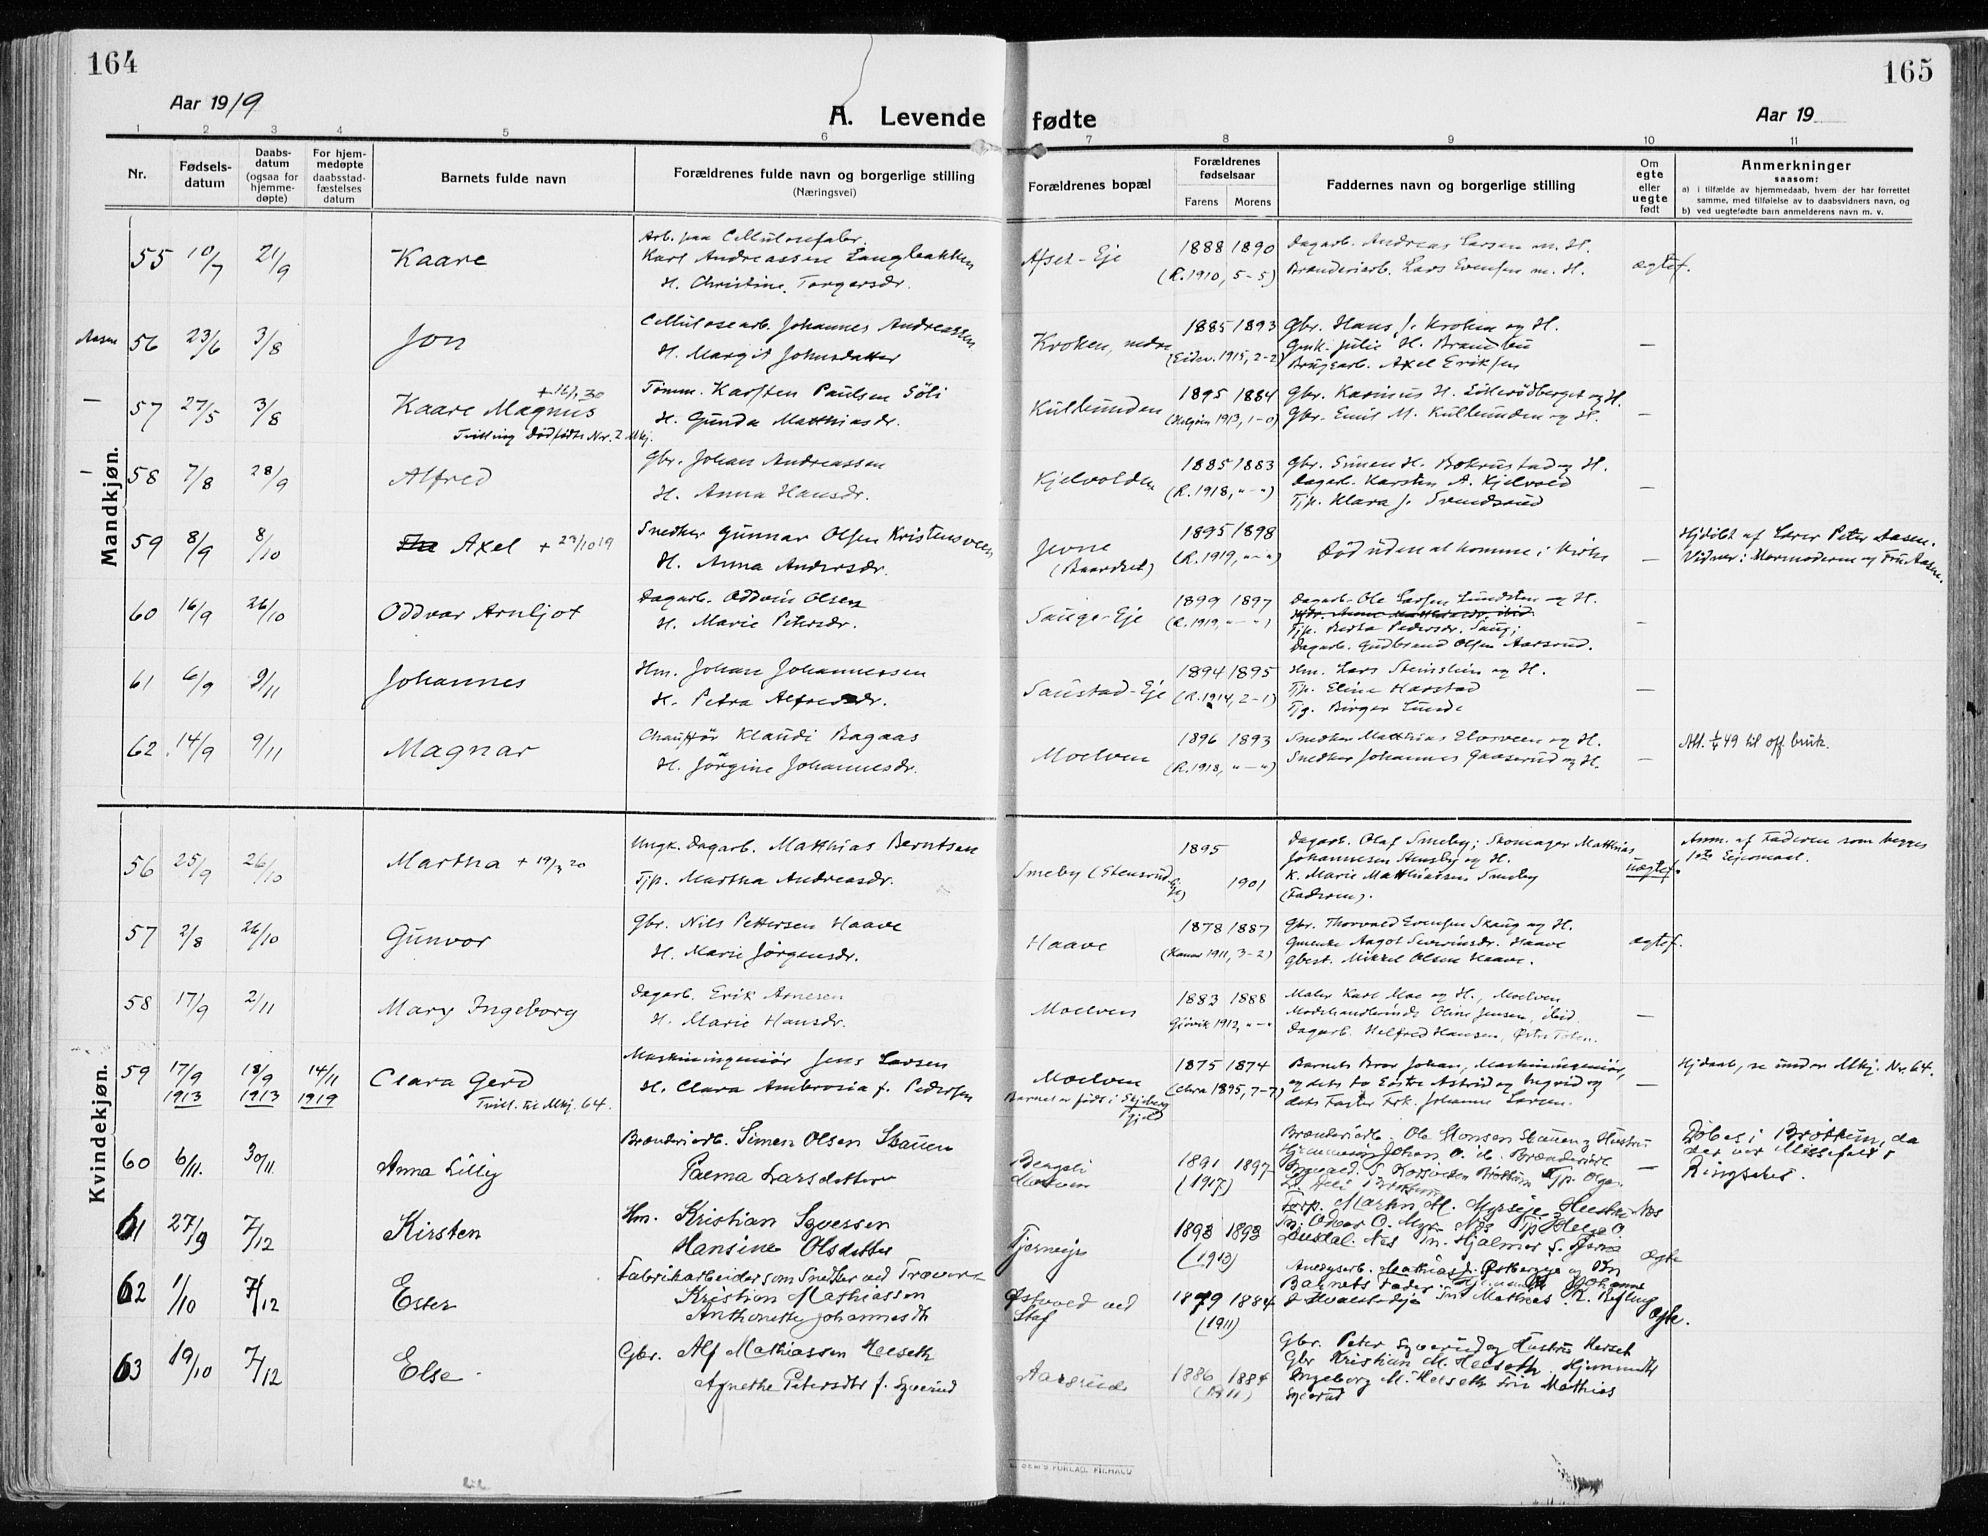 164
165
Aar 1919
A. Levende fødte
Aar 19
1 2 3 4 5 6 7 8 9 10 11
Nr.
Fødsels-
datum
Daabs-
datum
(ogsaa for
hjemme-
døpte)
For hjem-
medøpte
daabsstad-
fæstelses
datum
Barnets fulde navn
Forældrenes fulde navn og borgerlige stilling
(Næringsvei)
Forældrenes bopæl
Forældrenes
fødselsaar
Farens Morens
Faddernes navn og borgerlige stilling
Om
egte
eller
uegte
født
Anmerkninger
saasom:
a) i tilfælde av hjemmedaab, hvem der har forrettet
samme, med tilføielse av to daabsvidners navn, og
b) ved uegtefødte barn anmelderens navn m. v.
Mandkjøn.
55 10/7 21/9 Kaare
Arb. paa Cellulosefabr.
Karl Andreassen Langbakken
H. Christine Torgersdr.
Afset-Eje
1888 1890
(R. 1910, 5-5)
Dagarb. Andreas Larsen m. H.
Brænderiarb. Lars Evensen m. H.
ægtef.
Aasen
56 23/6 3/8 Jon
Cellulosearb. Johannes Andreassen
H. Margit Johnsdatter
Kroken, nedre
1885 1893
(Eidsv. 1915, 2-2)
Gbr. Hans J. Kroken og H.
Gmk. Julie H. Brandbu
Brugsarb. Axel Eriksen
—
57 27/5 3/8 Kaare Magnus + 16/1 30
Tvilling Dødfødte Nr. 2 Mkj.
Tømm. Karsten Paulsen Söli
H. Gunda Matthiasdr.
Kullunden
1895 1884
(Helgøen 1913, 1-0)
Gbr. Kasinus H. Lillerødberget og H.
Gbr. Emil M. Kullunden og H.
—
58 7/8 28/9 Alfred
Gbr. Johan Andreassen
H. Anna Hansdr.
Kjelvolden
1885 1883
(R. 1918, "-")
Gbr. Simen H. Bakrustad og H.
Dagarb. Karsten A. Kjelvold
Tjp. Klara J. Svendsrud
—
59 8/9 8/10 Axel + 29/10 19
Snedker Gunnar Olsen Kristensveen
H. Anna Andersdr.
Jevne
(Baardset)
1895 1898
(R. 1919, "-")
Død uden at komme i Kirke
—
Hjdøbt af Lærer Peter Aasen.
Vidner: Mormoderen og Fru Aasen.
60 16/9 26/10 Oddvar Arnljot
Dagarb. Oddvin Olsen
H. Marie Petersdr.
Sauge-Eje
1899 1897
(R. 1919, "-")
Dagarb. Ole Larsen Lundsten og H.
Tjp. Berta Pedersdr. Saug;
Dagarb. Gudbrand Olsen Aarsrud.
—
61 6/9 9/11 Johannes
Hm. Johan Johannessen
H. Petra Alfredsdr.
Saustad-Eje
1894 1895
(R. 1914, 2-1)
Hm. Lars Stensslien og H.
Tjp. Eline Harstad
Tjg. Birger Lunde
—
62 14/9 9/11 Magnar
Chauffør Klaudi Bagaas
H. Jørgine Johannesdr.
Moelven
1896 1893
(R. 1918, "-")
Snedker Matthias Elvsveen og H.
Snedker Johannes Gaaserud og H.
—
Att. 1/4 49 til off. bruk.
Kvindekjøn.
56 25/9 26/10 Martha + 19/3 20
Ungk. Dagarb. Matthias Berntsen
Tjp. Martha Andreasdr.
Smeby (Stensrud Eje)
1895
1901
Dagarb. Olaf Smeby; Skomager Matthias
Johannesen Stensby og H.
K. Marie Matthiassen Smeby
(Faderen).
uægtef.
Anm. af Faderen som begges
1ste Leiermaal.
57 2/8 26/10 Gunvor
Gbr. Nils Pettersen Haave
H. Marie Jørgensdr.
Haave
1878 1887
(Hamar 1911, 3-2)
Gbr. Thorvald Evensen Skaug og H.
Gmende Aagot Severinsdr. Haave
Gbest. Mikkel Olsen Haave.
ægtef.
58 17/9 2/11 Mary Ingeborg
Dagarb. Erik Arnesen
H. Marie Hansdr.
Moelven
1883 1888
Gjøvik 1912, "-"
Maler Karl Moe og H., Moelven
Modehandlerinde Oline Jensen, ibid.
Dagarb. Helfred Hansen, Østre Toten.
—
59 17/9 1913 18/9 1913 14/11 1919 Clara Gerd
Tvill. til Mkj. 64.
Maskiningeniør Jens Larsen
H. Clara Ambrosia f. Pedersen
Moelven
Barnet er født i Skjeberg
Gjeld
1875 1874
(Chra 1895, 7-7)
Barnets Bror Johan, Maskiningeniør,
og dets to Søstre Astrid og Ingrid og
dets Faster Frk. Johanne Larsen.
—
Hjdaab, se under Mkj. Nr. 64.
60 6/11. 30/11. Anna Lilly
Brænderiarb. Simen Olsen Stauen
Paema Larsdatter
1891 1897
(1917)
Brænderiarb. Ole Hansen Stauen og Hustru
—
Døbes i Brøttum, da
der var Messefald i
Ringsaker.
61 27/9 7/12 Kirsten
Hm. Kristian Syversen
Hansine Olsdatter
Tjerneeje
1893 1893
(1913)
ægte
62 1/10 7/12 Ester
Fabrikarbeider som Snedker ved Trævare
Kristian Mathiassen
Anthonette Johannesdtr
Østvold ved
Staf
1879 1884
(1911)
Ægte.
63 19/10 7/12 Else
Gbr. Alf Mathiassen Helseth
Agnethe Petersdtr f. Syverud
Aasrud
1886 1884
(1911)
Gbr. Peter Syverud og Hustru Herset
Gbr Kristian M. Helseth. Hjemmevdt
Ingeborg M. Helseth Fru Mathias
Syverud